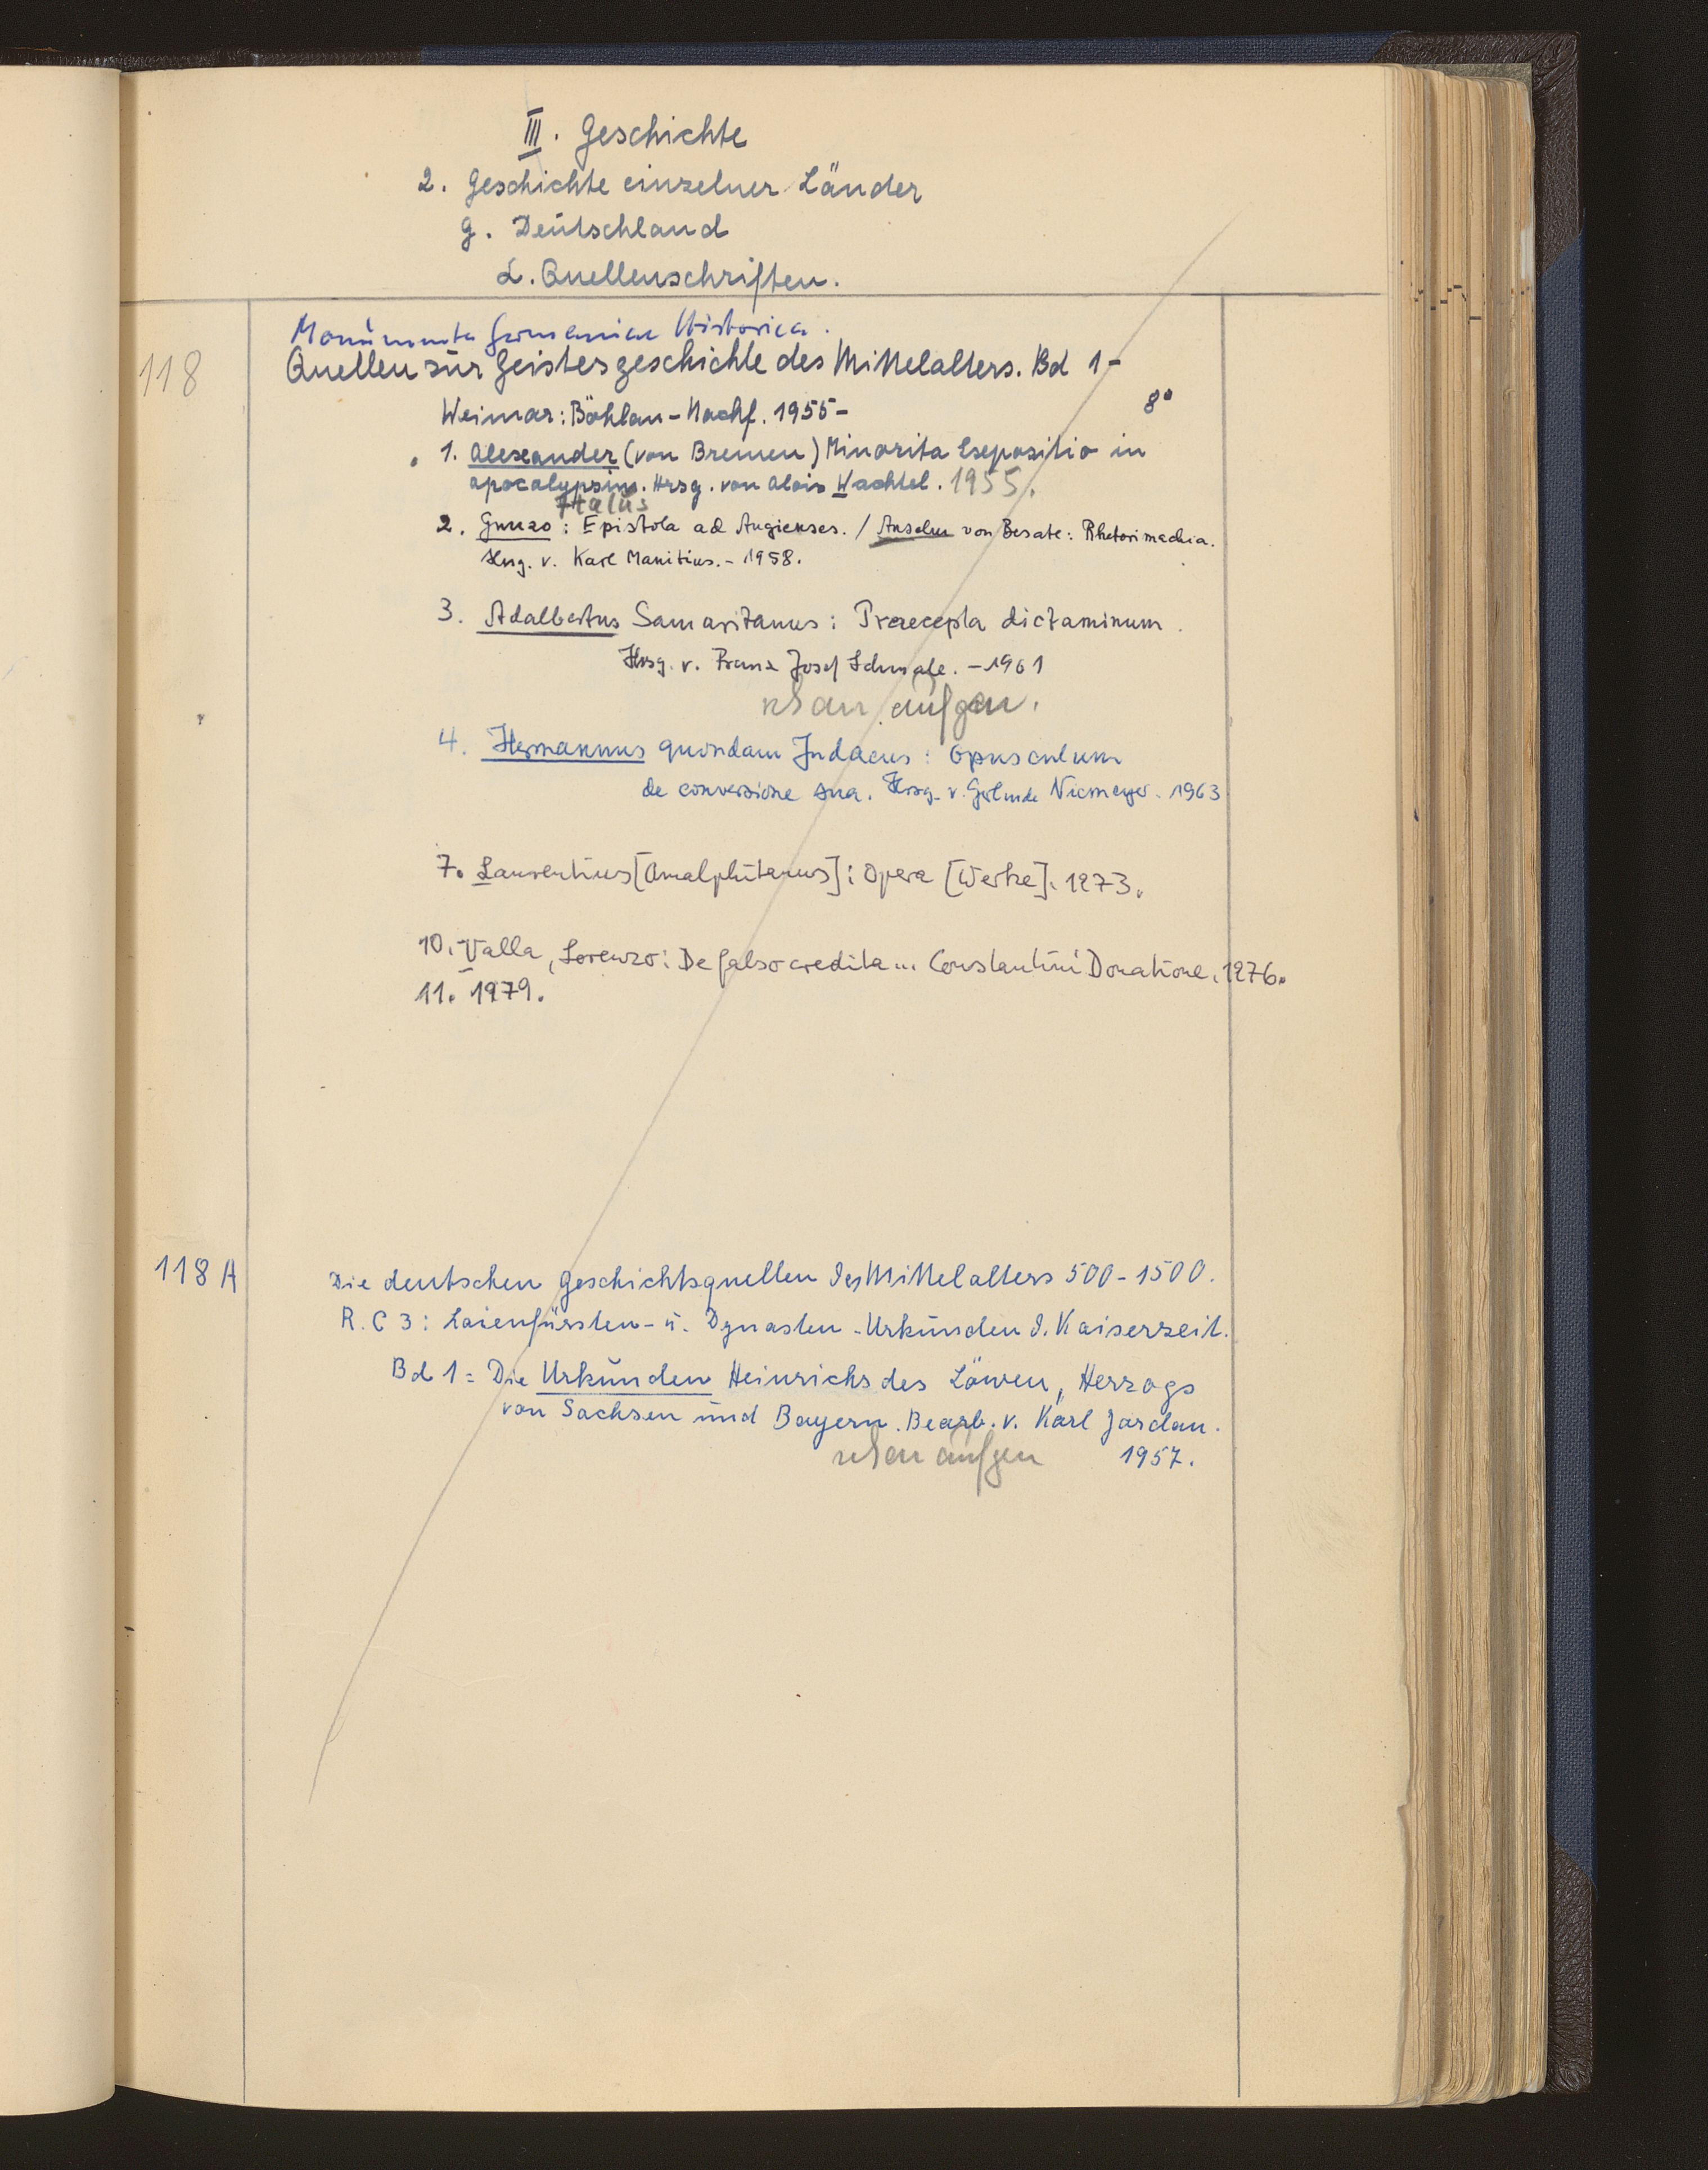 III. Geschichte
2. Geschichte einzelner Länder
g. Deutschland
α. Quellenschriften.
Monumenta Germaniae Historica.
118
Quellen zur Geistesgeschichte des Mittelalters. Bd 1-
Weimar: Böhlau-Nachf. 1955- 8°
1. Alexander (von Bremen) Minorita Expositio in
apocalypsim. Hrsg. von Alois Wachtel. 1955.
Italus
2. Gunzo: Epistola ad Augienses. / Anselm von Besate: Rhetorimachia.
Hrsg. v. Karl Manitius. - 1958.
3. Adalbertus Samaritanus: Praecepta dictaminum.
Hrsg. v. Franz Josef Schmale. - 1961
aufgen.
4. Hermannus quondam Judaeus: Opusculum
de conversione sua. Hrsg. v. Gerlinde Niemeyer. 1963
7. Laurentius [Amalphitanus]: Opera [Werke]. 1973.
10. Valla, Lorenzo: De falso credita... Constantini Donatione. 1976.
11. 1979.
118 A
Die deutschen Geschichtsquellen des Mittelalters 500-1500.
R. C 3: Laienfürsten- u. Dynasten-Urkunden d. Kaiserzeit.
Bd 1 = Die Urkunden Heinrichs des Löwen, Herzogs
von Sachsen und Bayern. Bearb. v. Karl Jordan.
aufgen 1957.